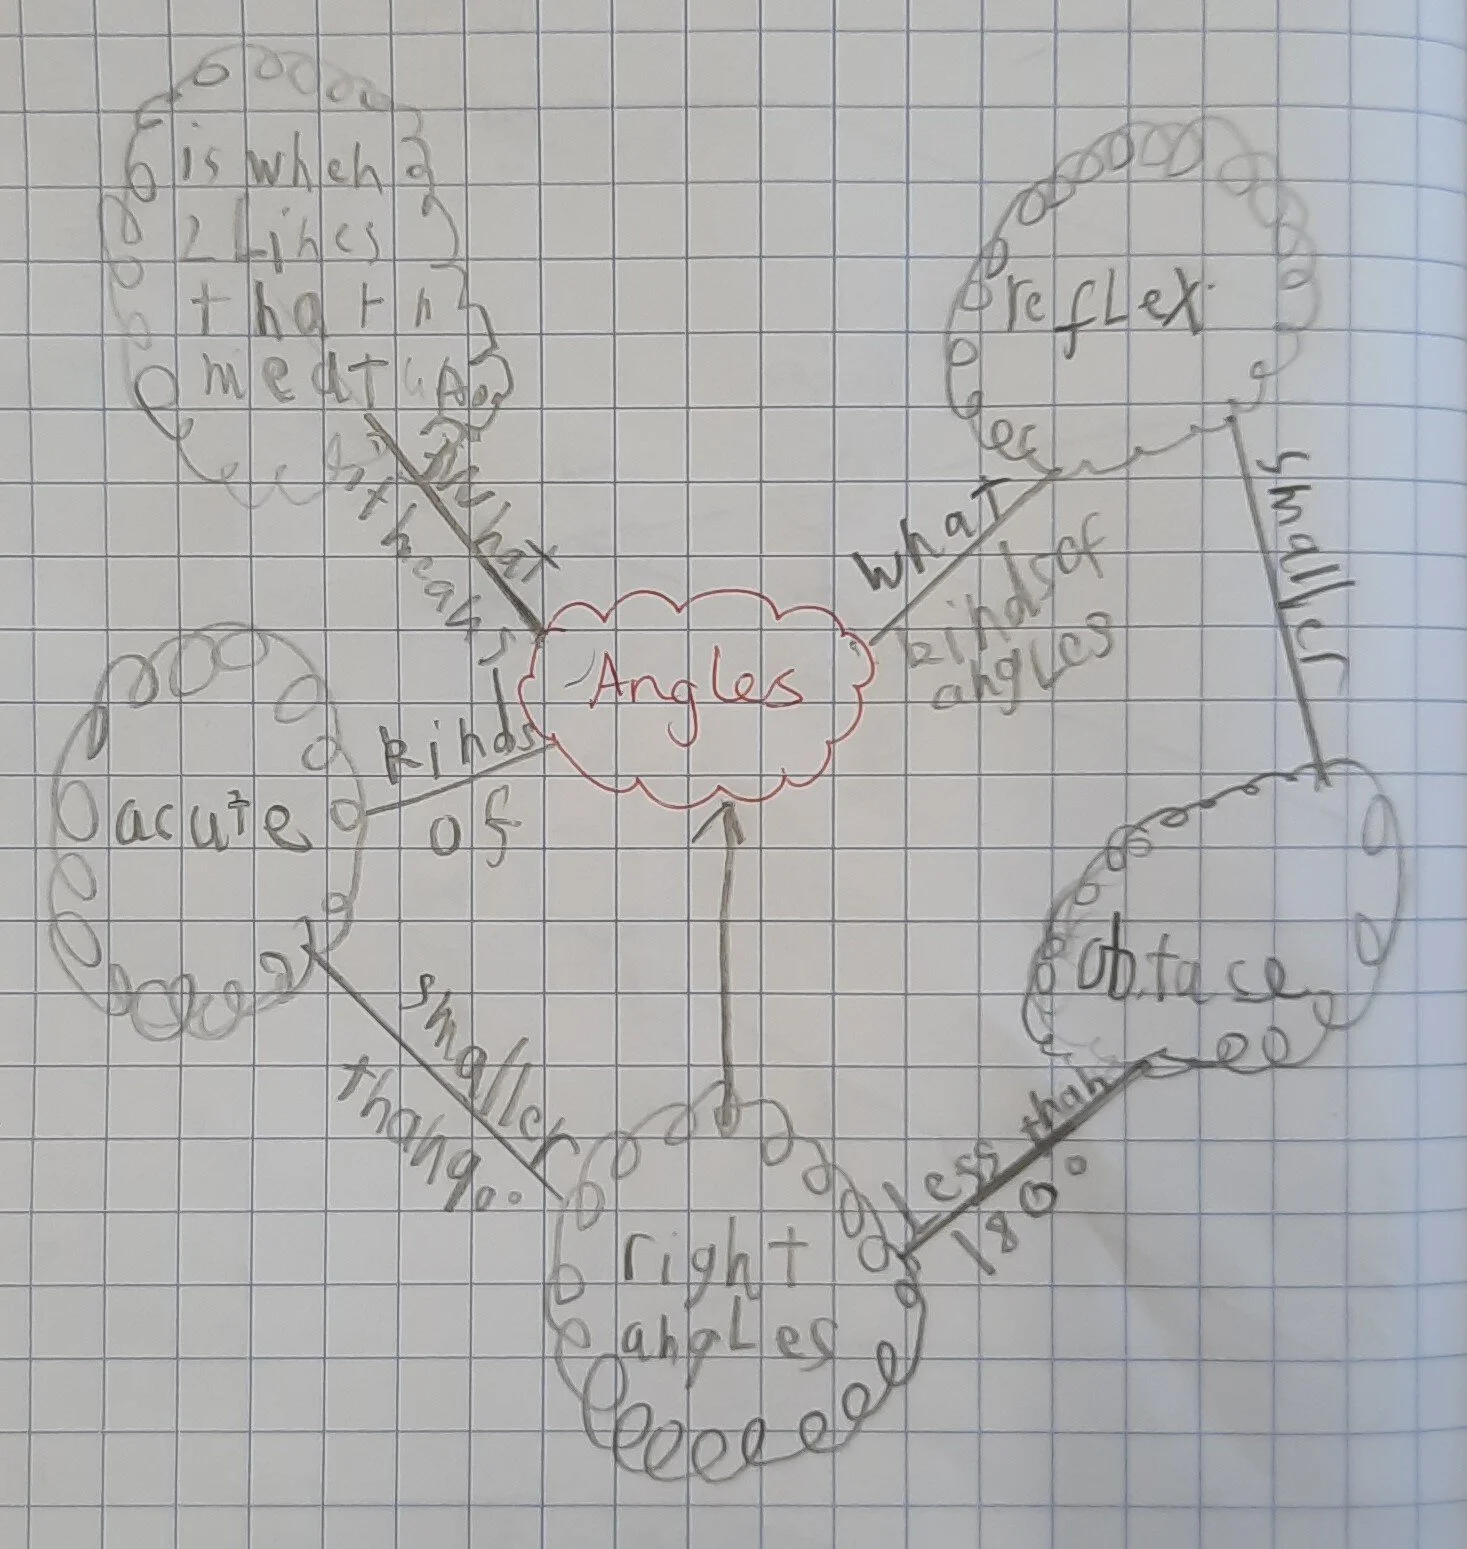 is when
2 Lines
that
meat up
what
it means
Angles
reflex
what
kinds of
angles
smaller
kinds
of
acute
obtase
smaller
than 90°
Less than
180°
right
angles